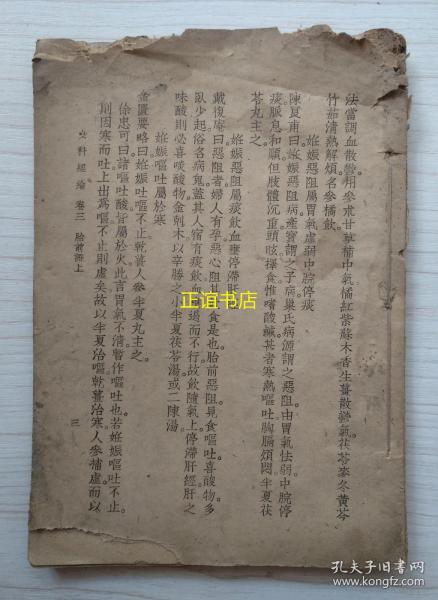 法當調血散鬱用參朮甘草補中氣橘紅紫蘇木香生薑散鬱氣茯苓麥冬黃芩
竹茹清熱解煩名參橘飲
妊娠惡阻屬胃氣虛弱中脘停痰
陳良甫曰妊娠惡阻病產寶謂之子病巢氏病源謂之惡阻由胃氣怯弱中脘停
痰脈息和順但肢體沉重頭眩擇食惟嗜酸鹹甚者寒熱嘔吐胸膈煩悶半夏茯
苓丸主之
妊娠惡阻屬痰飲血壅停滯肝經
戴復庵曰惡阻者婦人有孕惡心阻其飲食是也胎前惡阻見食嘔吐喜酸物多
臥少起俗名病兒蓋其人宿有痰飲血壅遏而不行故飲隨氣上停滯肝經肝之
味酸則必喜啖酸物金剋木以辛勝之小半夏茯苓湯或二陳湯
妊娠嘔吐屬於寒
金匱要略曰妊娠嘔吐不止乾薑人參半夏丸主之
徐忠可曰諸嘔吐酸皆屬於火此言胃氣不清暫作嘔吐也若妊娠嘔吐不止
則因寒而吐上出爲嘔不止則虛矣故以半夏治嘔乾薑治寒人參補虛而以
女科經綸 卷三 胎前證上 三
正谊书店
孔夫子旧书网
www.kongfz.com